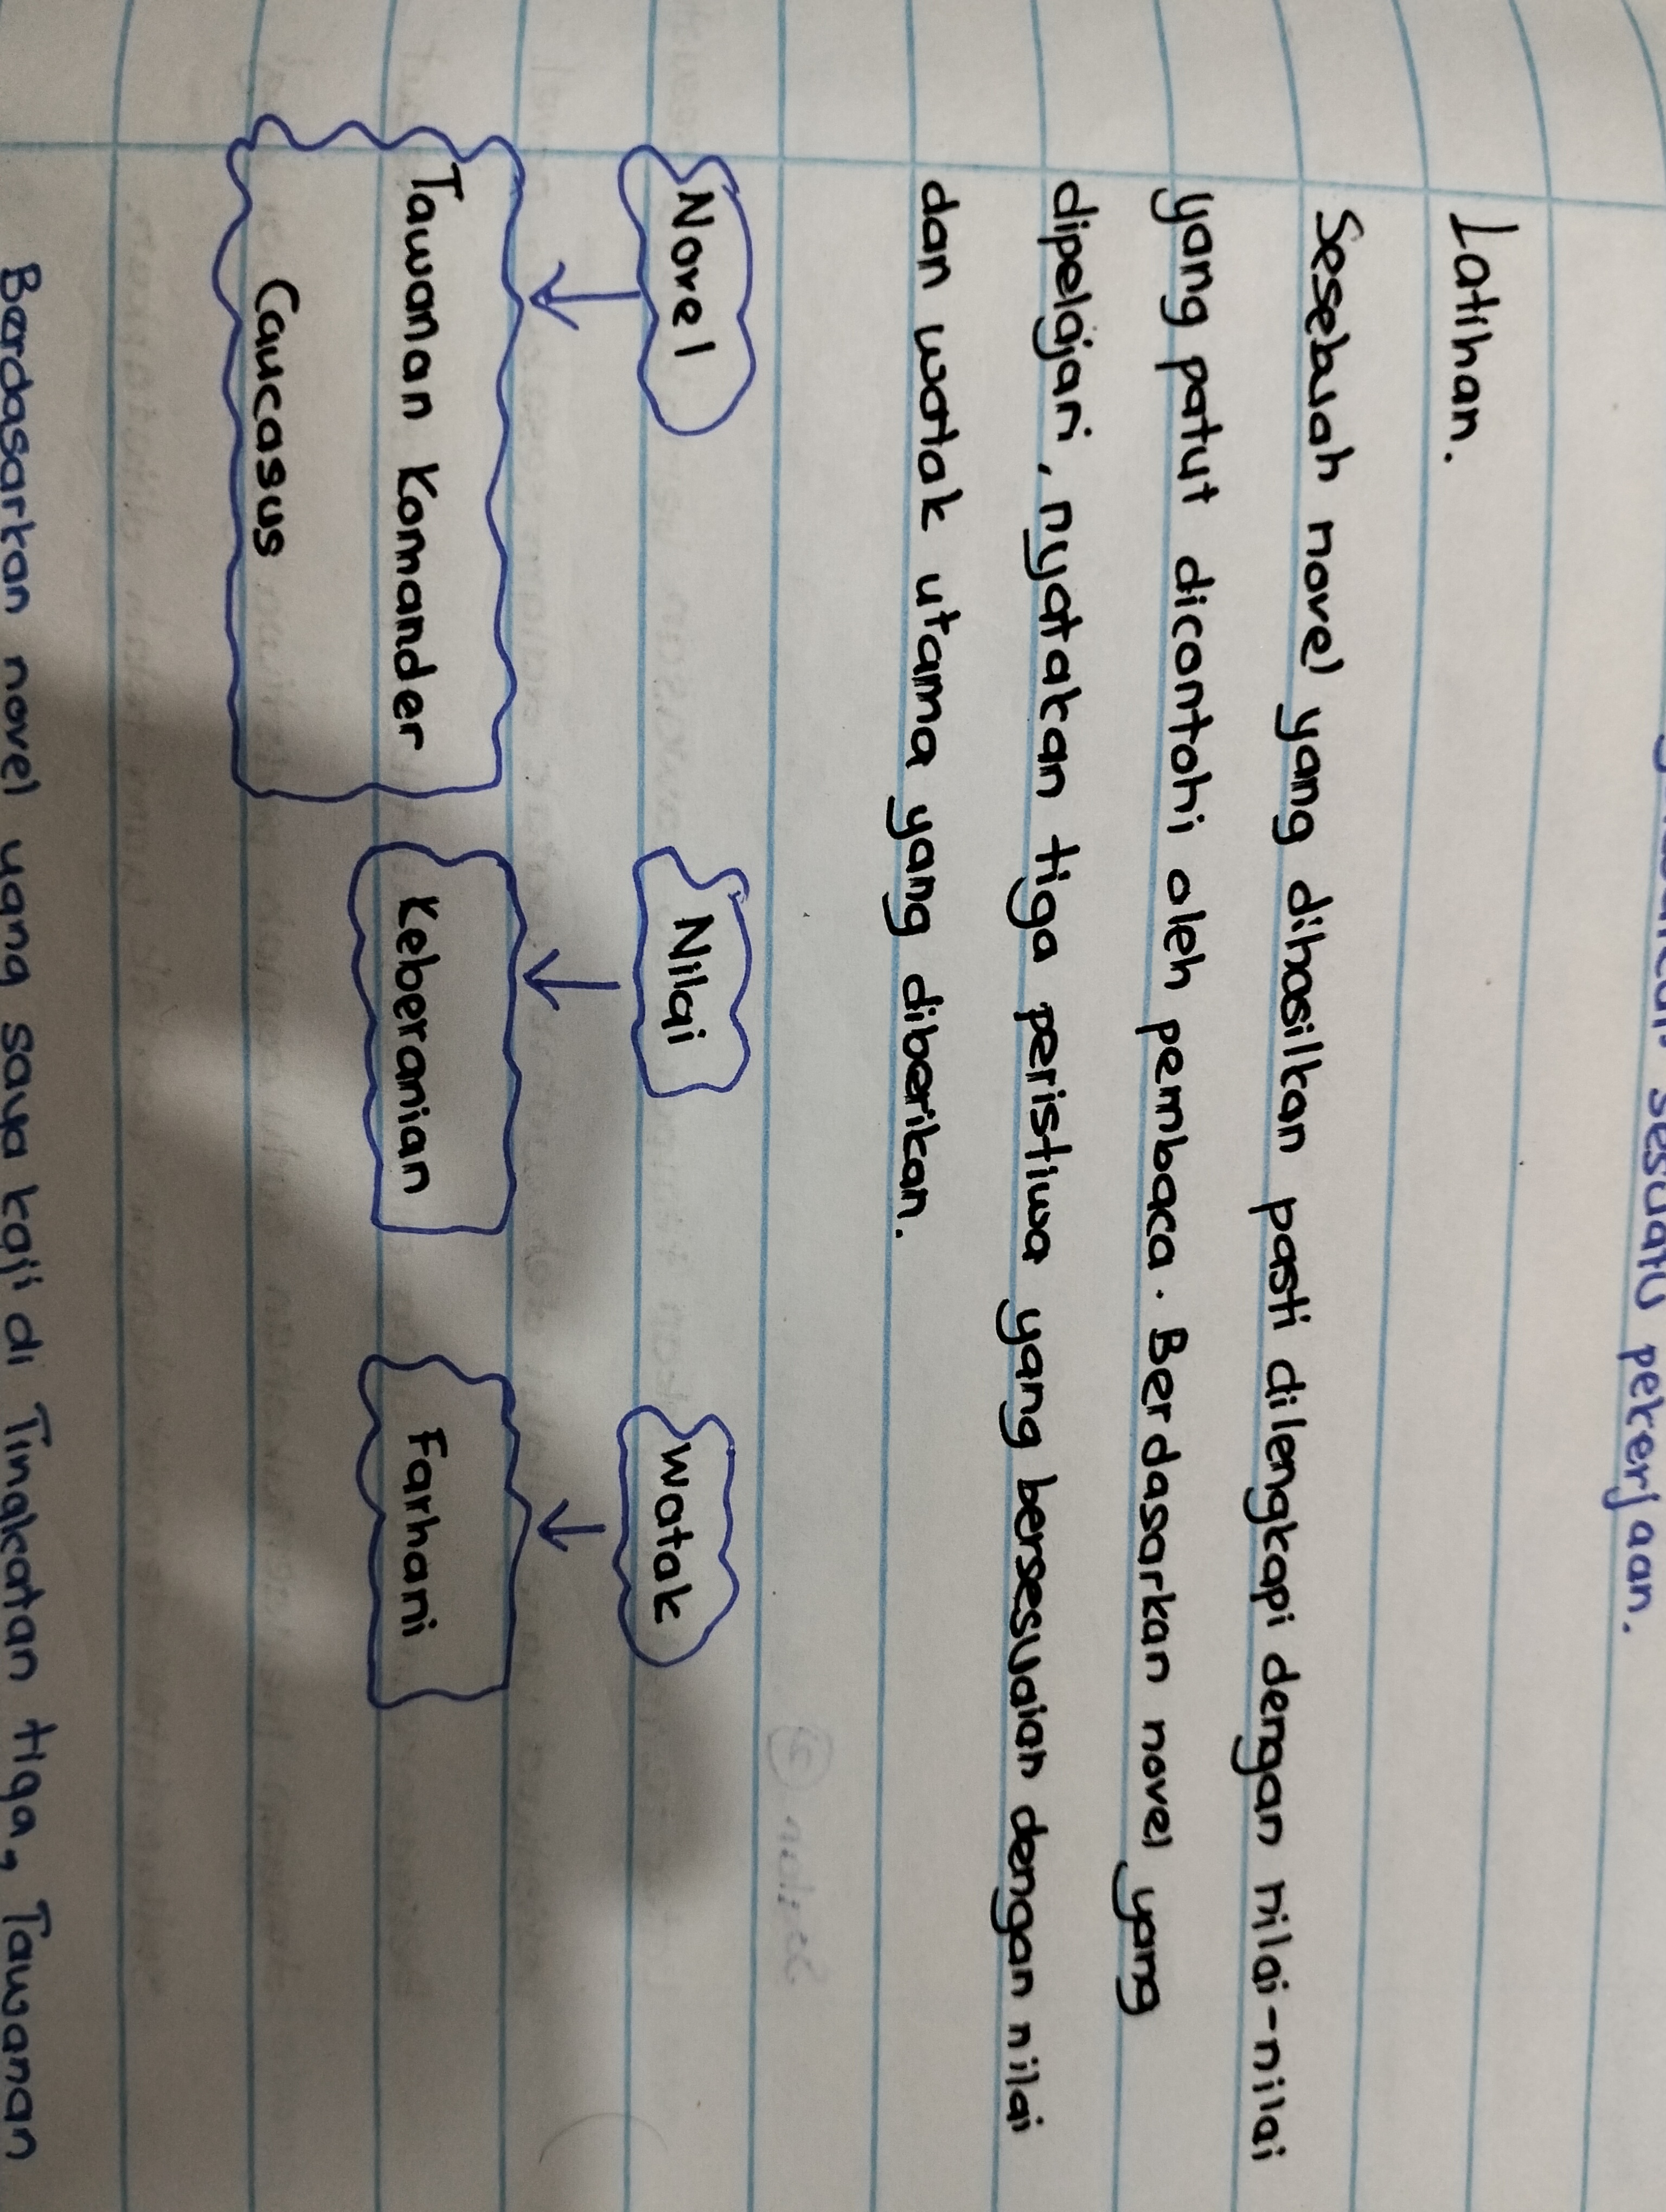 sesuatu pekerjaan.
Latihan.
Sesebuah novel yang dihasilkan pasti dilengkapi dengan nilai-nilai
yang patut dicontohi oleh pembaca. Berdasarkan novel yang
dipelajari, nyatakan tiga peristiwa yang bersesuaian dengan nilai
dan watak utama yang diberikan.
Novel Nilai Watak
Tawanan Komander Keberanian Farhani
Caucasus
Berdasarkan novel yang saya kaji di Tingkatan tiga, Tawanan